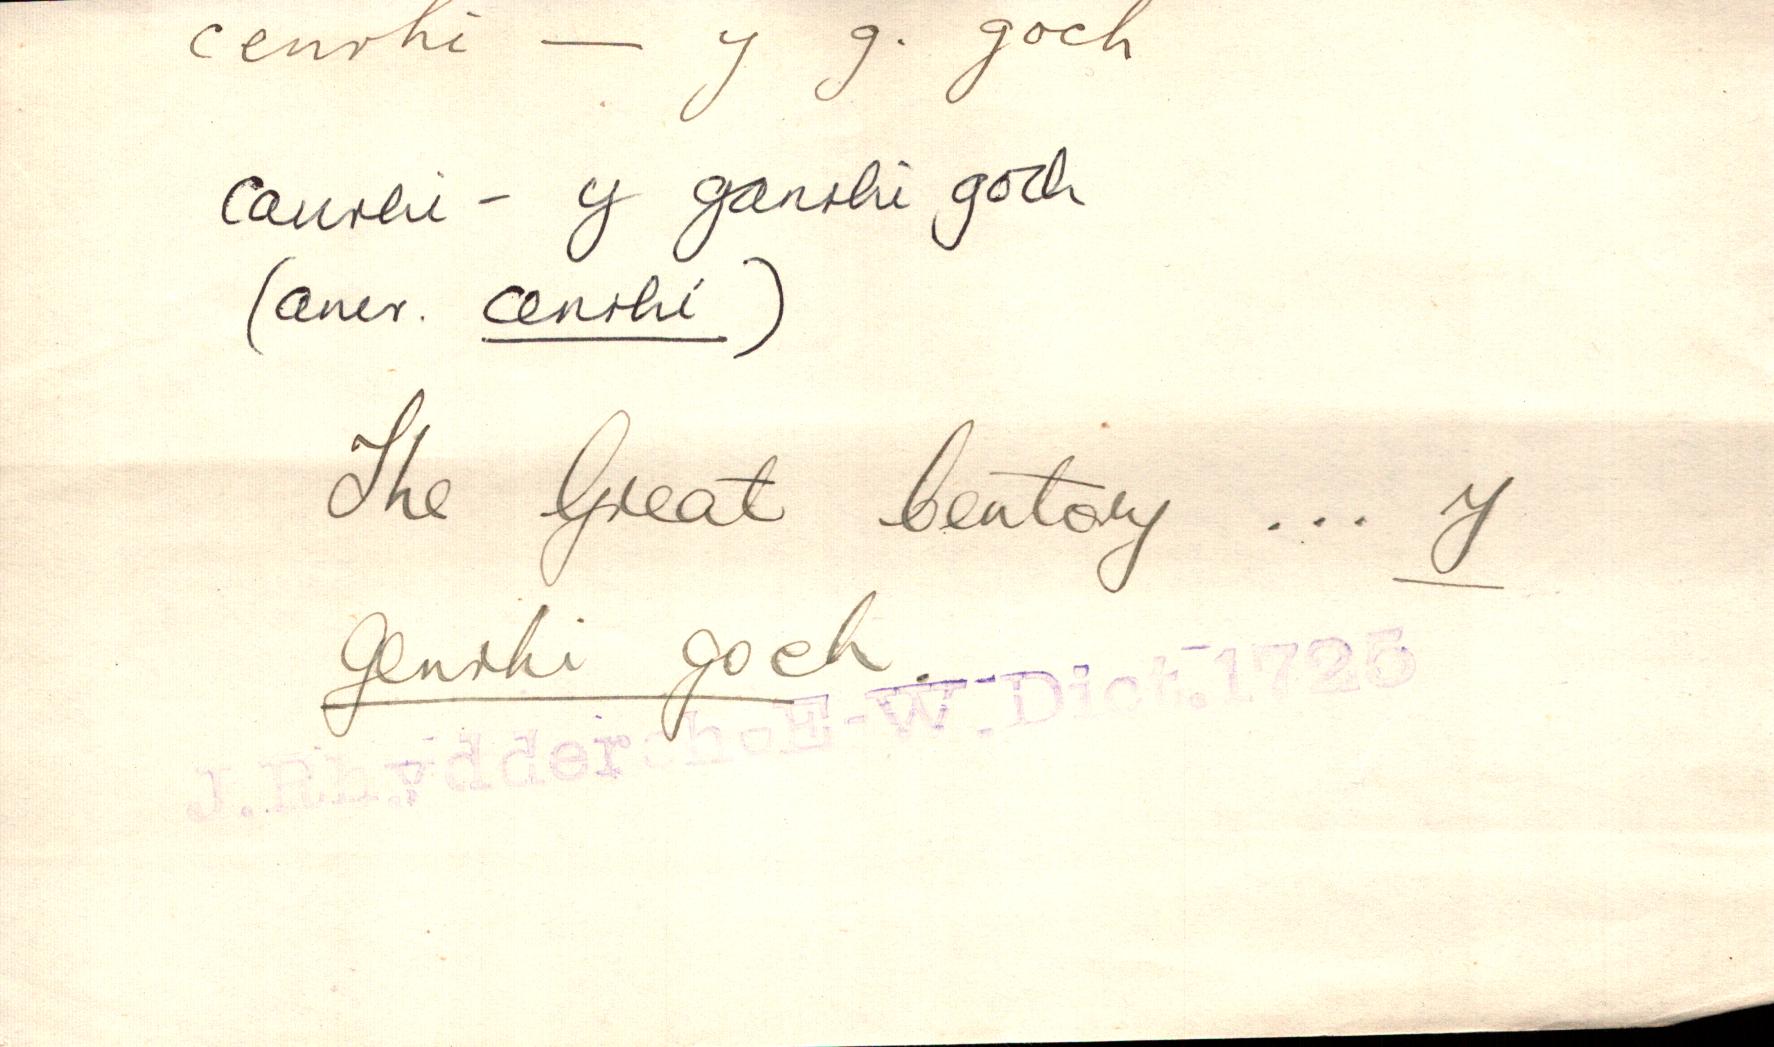 cenrhi — y g. goch
canrhi - y ganrhi goch
(amr. cenrhi)
The Great Centory ... y
genrhi goch.
J.Rhydderch-E-W.Dict.1725